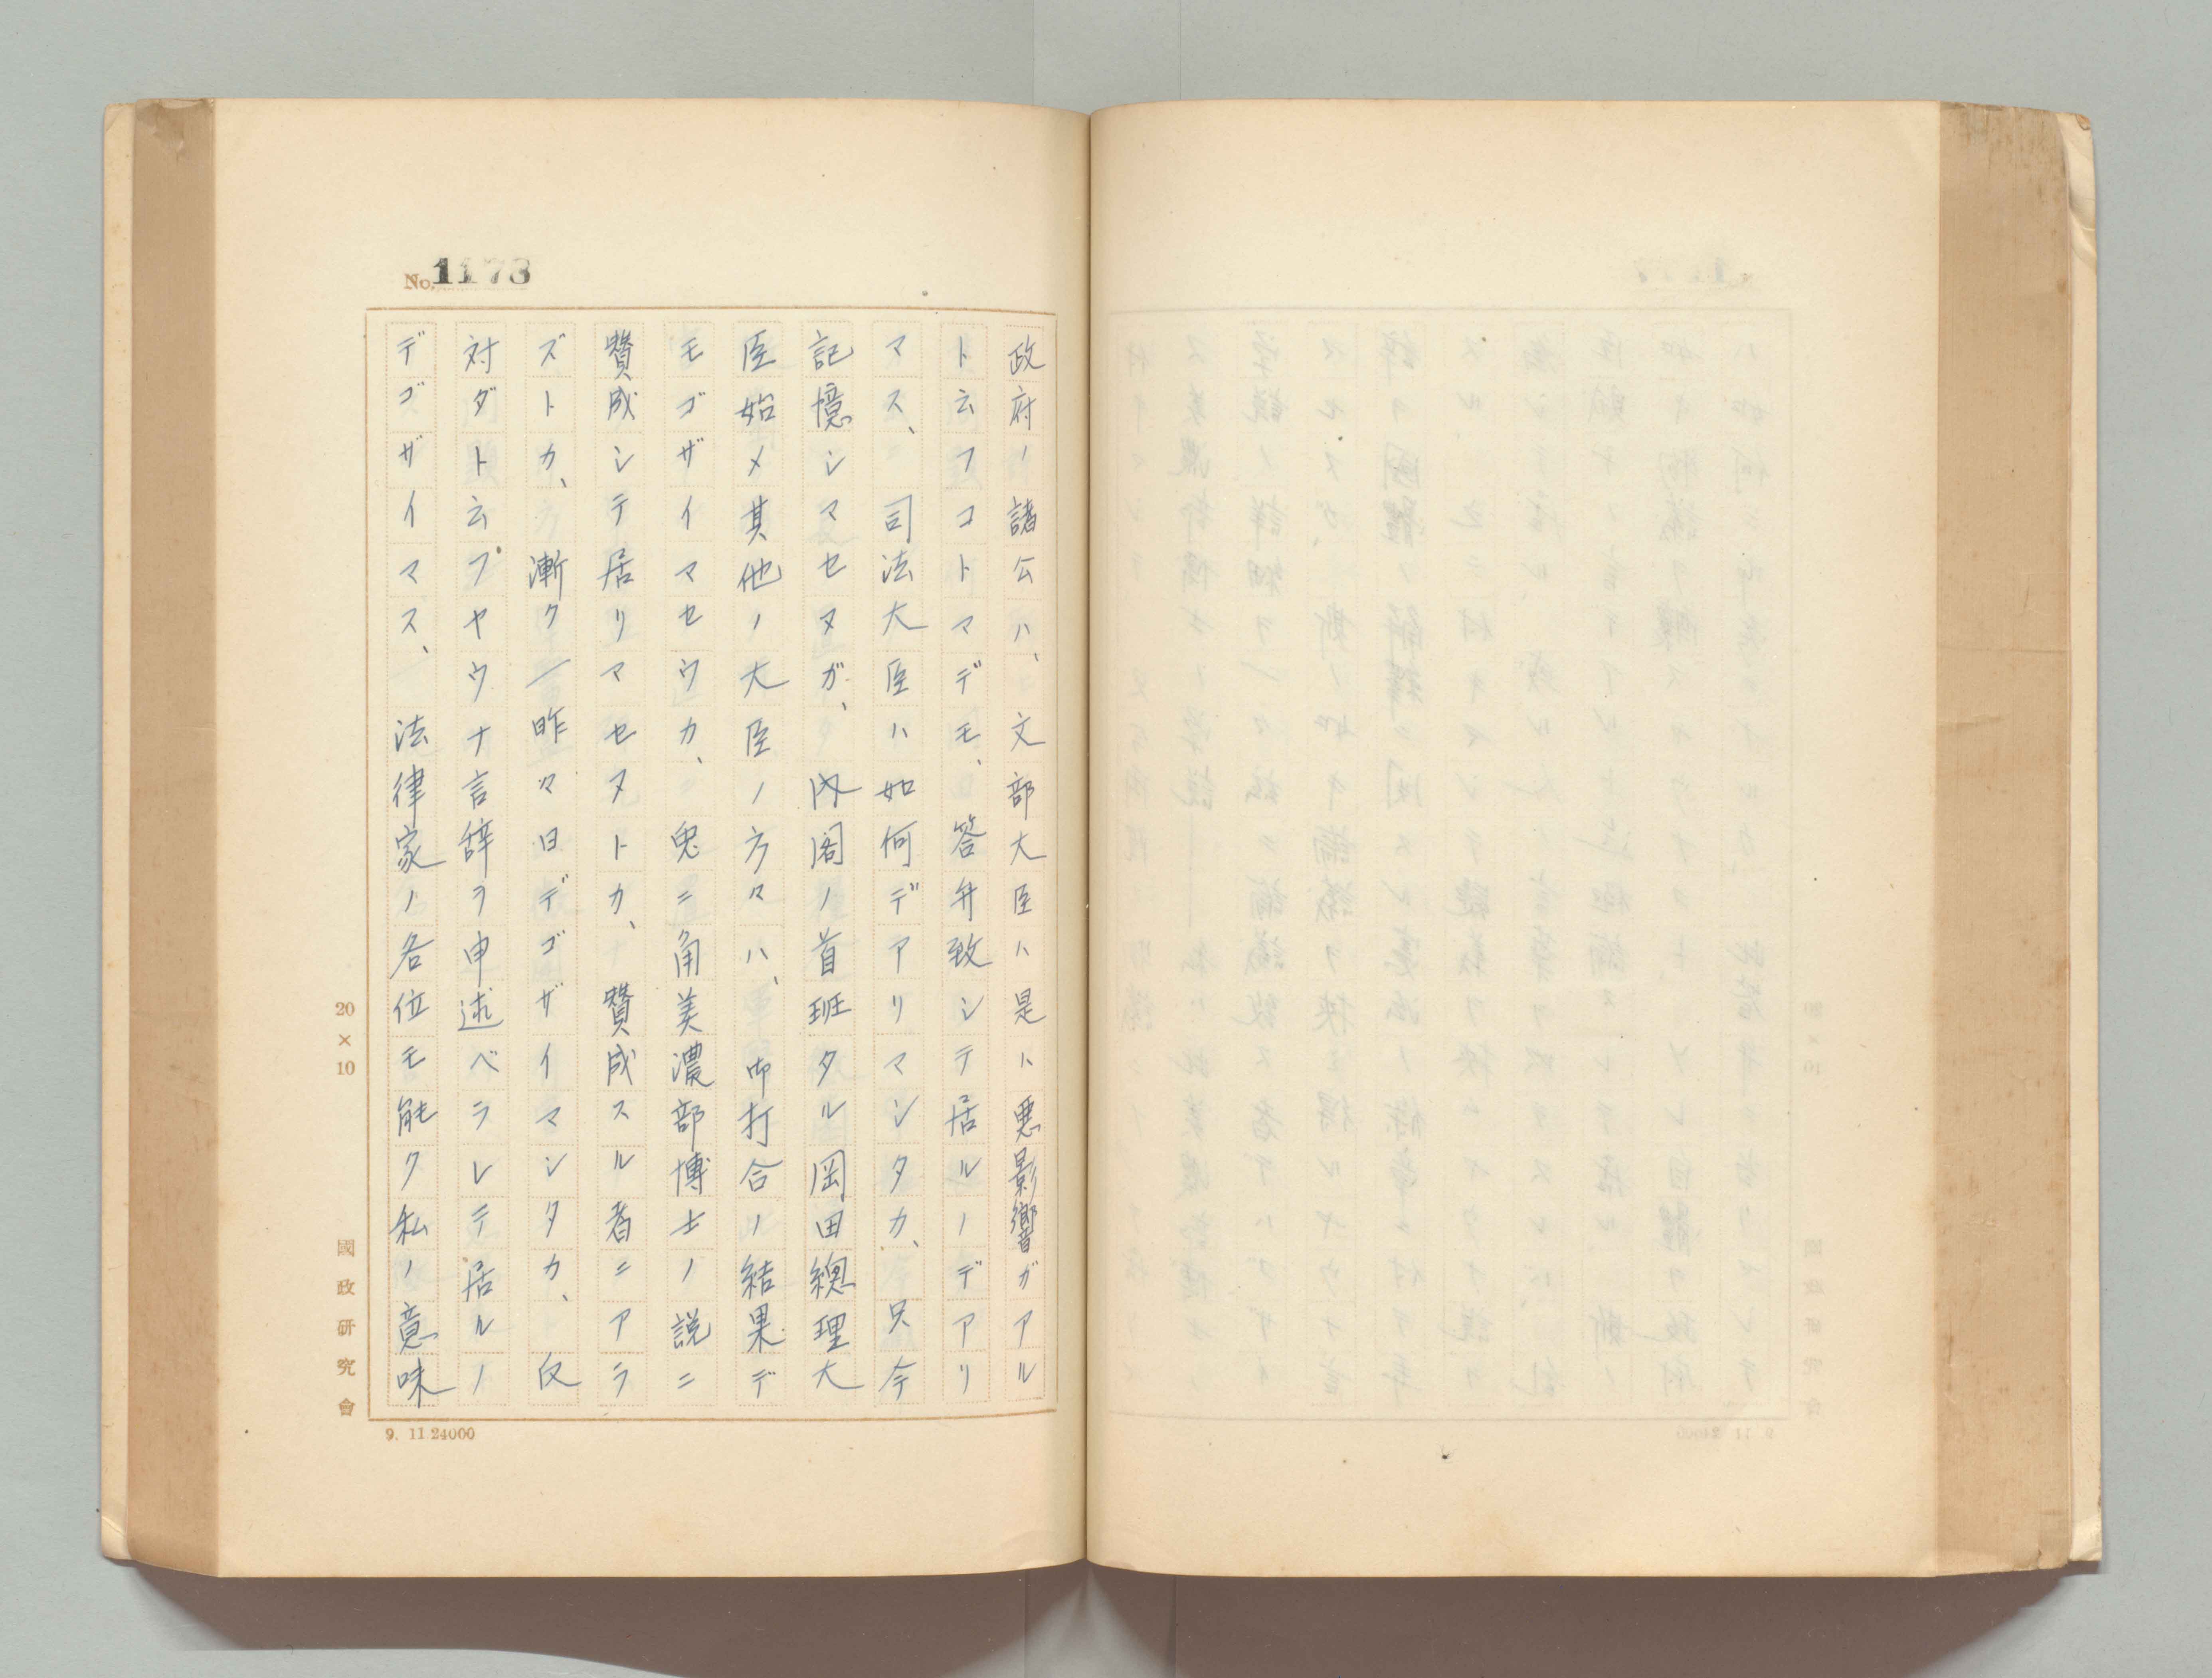 No. 1173
政府ノ諸公ハ、文部大臣ハ是ハ悪影響ガアル
ト云フコトマデモ、答弁致シテ居ルノデアリ
マス、司法大臣ハ如何デアリマシタカ、只今
記憶シマセヌガ、内閣ノ首班タル岡田總理大
臣始メ其他ノ大臣ノ方々ハ、御打合ノ結果デ
モゴザイマセウカ、兎ニ角美濃部博士ノ説ニ
賛成シテ居リマセヌトカ、賛成スル者ニアラ
ズトカ、漸ク一昨々日デゴザイマシタカ、反
対ダト云フヤウナ言辞ヲ申述ベラレテ居ルノ
デゴザイマス、法律家ノ各位モ能ク私ノ意味
20×10
國政研究會
9. 11 24000